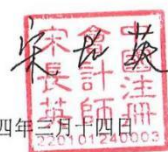 宋长英
中国注册
會計師
宋長英
220101240003
四年三月十四日